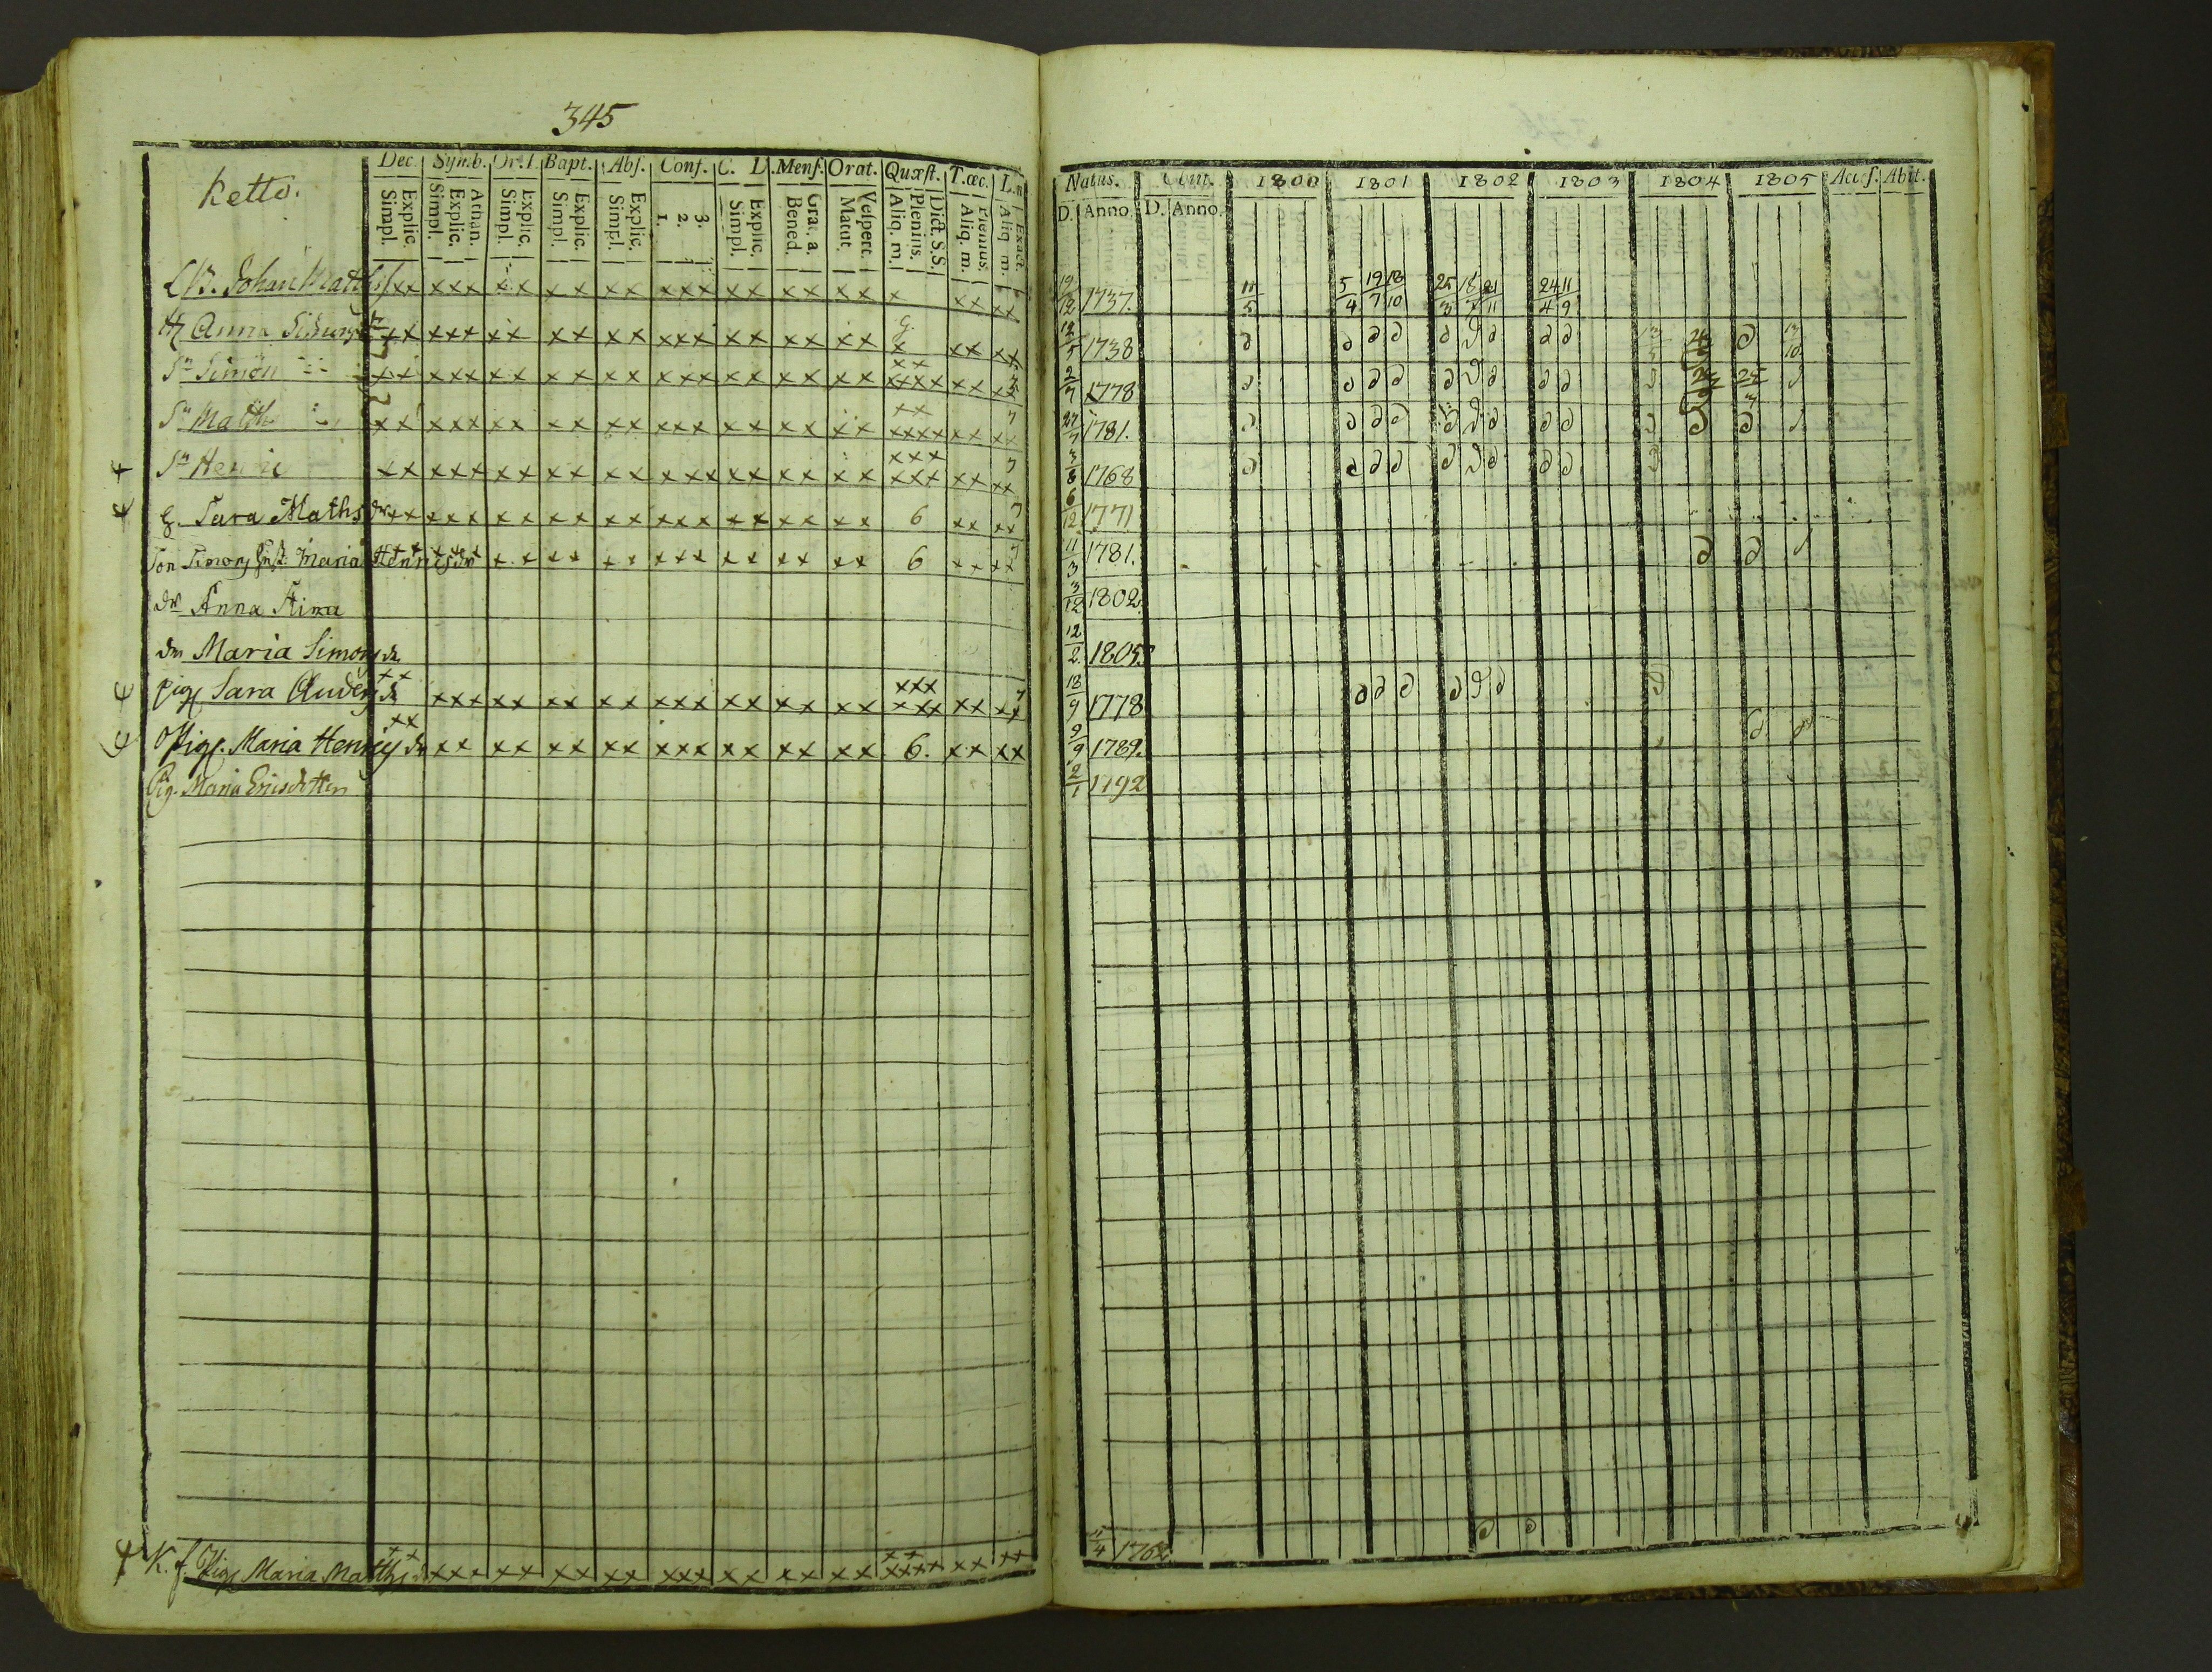 345
Ketto.
Dec. Symb. Or. I. Bapt. Abs. Conf. C. D. Mens. Orat. Quæst. T.œc. L.n
Explic. Simpl. Athan. Explic. Simpl. Explic. Simpl. Explic. Simpl. Explic. Simpl. 3. 2. 1. Explic. Simpl. Grat. a. Bened. Vespert. Matut. Dict. S.S. Plenius. Aliq. m. Plenius. Aliq. m. Exact. Aliq. m.
Natus. Conf. 1800 1801 1802 1803 1804 1805 Accs. Abit.
D. Anno. D. Anno.
Johan xx xxx xx xx xx xxx xx xx xx x xx xx 19/12 1737. 11/5 5/4 19/7 18/10 25/3 18/7 21/11 24/4 11/9
H Anna xx xxx xx xx xx xxx xx xx xx x xx xx 12/5 1738
Sn Simon xx xxx xx xx xx xxx xx xx xx xx xxxx xx xx 2/7 1778
Sn Math xx xxx xx xx xx xxx xx xx xx xx xxxx xx xx 27/7 1781.
Sn Henric xx xxx xx xx xx xxx xx xx xx xxx xxx xx xx 3/8 1768
Sara Maths dr xx xxx xx xx xx xxx xx xx xx 6 xx xx 6/12 1771
Son Simons Hust. Maria Henricsdr xx xx xx xxx xx xx xx 6 xx xx 11/3 1781.
dr Anna Stina 3/12 1802.
dr Maria Simons dr 12/2. 1805.
pig Sara xx xxx xx xx xx xxx xx xx xx xxx xxx xx xx 18/9 1778
Pig. Maria Henrics dr xx xx xx xx xx xxx xx xx xx 6. xx xx 9/9 1789.
Pig. Maria 2/1 1792
K. f. Pig Maria Maths xx xxx xx xx xx xxx xx xx xx xx xxxx xx xx 11/4 1762